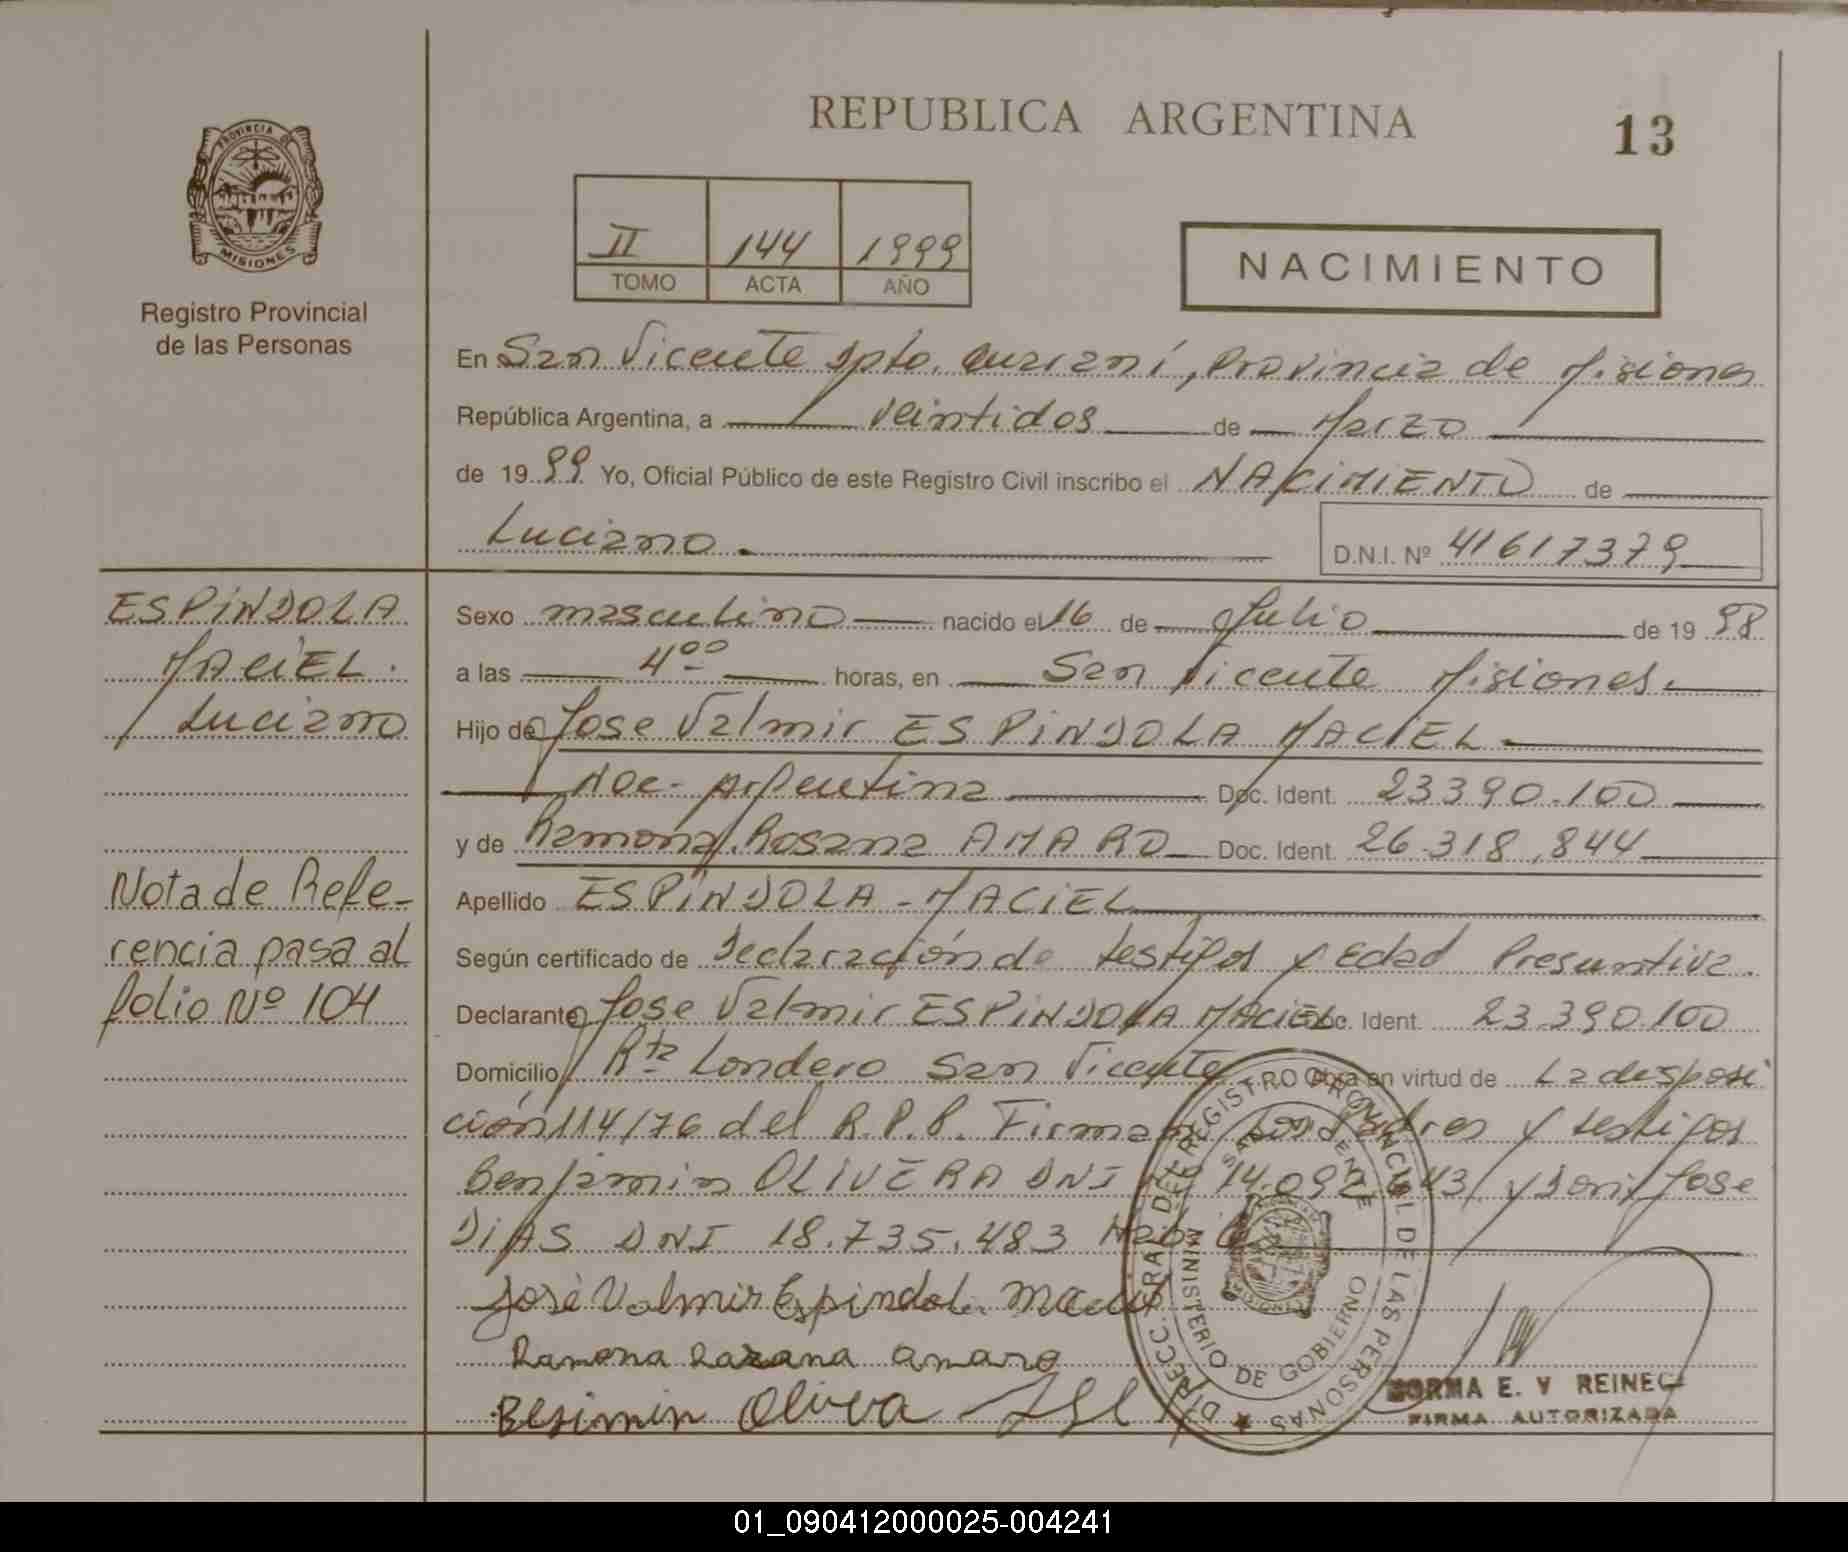 REPUBLICA ARGENTINA
13
PROVINCIA DE
MISIONES
Registro Provincial
de las Personas
II 144 1999
TOMO ACTA AÑO
NACIMIENTO
En San Vicente Dpto. Guaraní, Provincia de Misiones
República Argentina, a veintidos de Marzo
de 1999 Yo, Oficial Público de este Registro Civil inscribo el NACIMIENTO de
Luciano.
D.N.I. Nº 41617379
ESPINDOLA
MACIEL.
Luciano
Sexo masculino nacido el 16 de Julio de 1998
a las 4⁰⁰ horas, en San Vicente Misiones.
Hijo de Jose Valmir ESPINDOLA MACIEL
Nac. Argentina Doc. Ident. 23390.100
y de Ramona Rosana AMARO Doc. Ident. 26.318.844
Nota de Refe-
rencia pasa al
folio Nº 104
Apellido ESPINDOLA - MACIEL
Según certificado de Declaración de testigos y Edad Presuntiva.
Declarante Jose Valmir ESPINDOLA MACIEL Doc. Ident. 23.390.100
Domicilio Rta Londero San Vicente Obra en virtud de La desposi
ción 114/76 del R.P.P. Firman los Padres y testigos
Benjamin OLIVERA DNI 14.092. 43/ y Jose
DIAS DNI 18.735.483
José Valmir Espindola Maciel
Ramona Razana amaro
Besimin Olivera
DIRECC. GRAL. DEL REGISTRO PROVINCIAL DE LAS PERSONAS
SAN VICENTE
MINISTERIO DE GOBIERNO
MISIONES
NORMA E. V REINEC
FIRMA AUTORIZADA
01_090412000025-004241